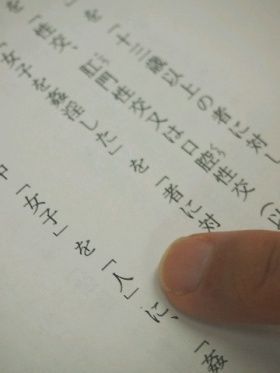 」を「十三歳以上の者に対し
を「性交、肛門性交又は口腔性交(以
「女子を姦淫した」を「者に対
中「女子」を「人」に、「姦